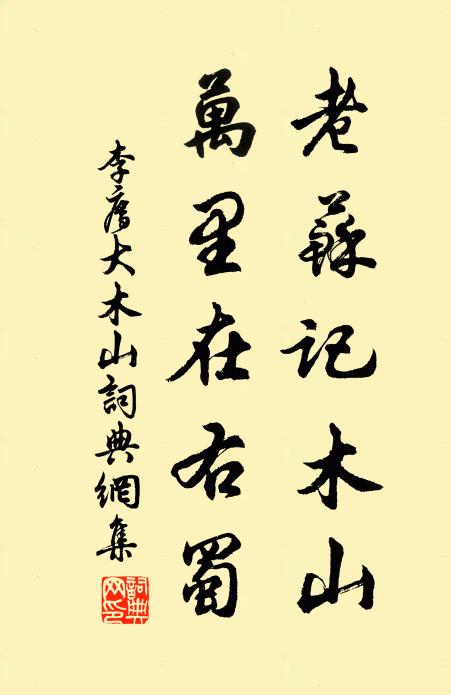 老蘇記木山
萬里在右蜀
李廌大木山詞典網集
詞典
网印